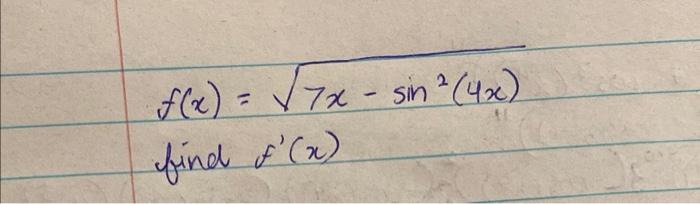 f(x) = √7x - sin²(4x)
find f'(x)